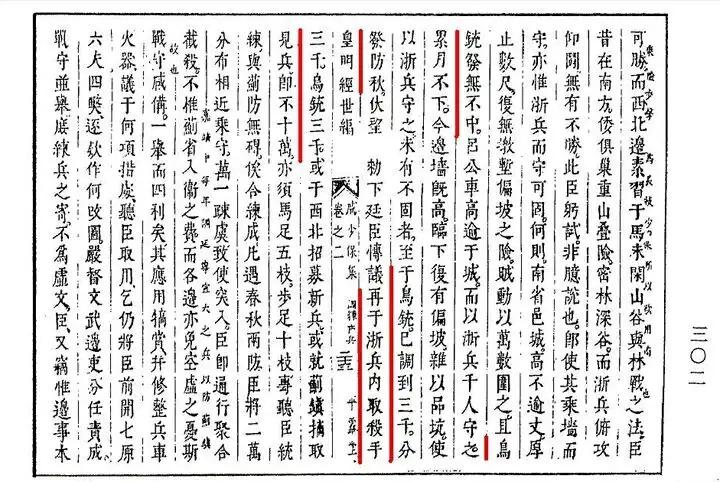 可勝而西北邊素習于馬未閑山谷與林戰之法臣
昔在南方倭俱巢重山疊險密林深谷而浙兵俯攻
仰鬭無有不勝此臣躬試非臆說也即使其乘墻而
守亦惟浙兵而守可固何則南省邑城高不逾丈厚
止數尺復無濠塹偏坡之險賊動以萬數圍之且鳥
銃發無不中呂公車高逾于城而以浙兵千人守之
累月不下今邊墻既高臨下復有偏坡雜以品坑使
以浙兵守之未有不固者至于鳥銃已調到三千分
發防秋伏望 勑下廷臣傳議再于浙兵內取殺手
皇明經世編 卷之二 戚少保集 平露堂
三千鳥銃三千或于西北招募新兵或就薊鎮摘取
見兵卽不十萬亦須馬足五枝步足十枝專聽臣統
練與薊防無碍俟合練成凡遇春秋兩防臣將二萬
分布相近乘守萬一疎虞致使突入臣卽通行聚合
嘉靖中每年調延綏宣大之兵以防薊鎮
故也
截殺不惟薊省入衛之費而各邊亦免空虛之憂斯
戰守咸備一舉而四利矣其應用犒賞幷修整兵車
火器議于何項措處聽臣取用乞仍將臣前開七原
六失四弊逐欵作何改圖嚴督文武邊吏分任責成
戰守並舉庶練兵之寄不爲虛文臣又竊惟邊事本
三〇二